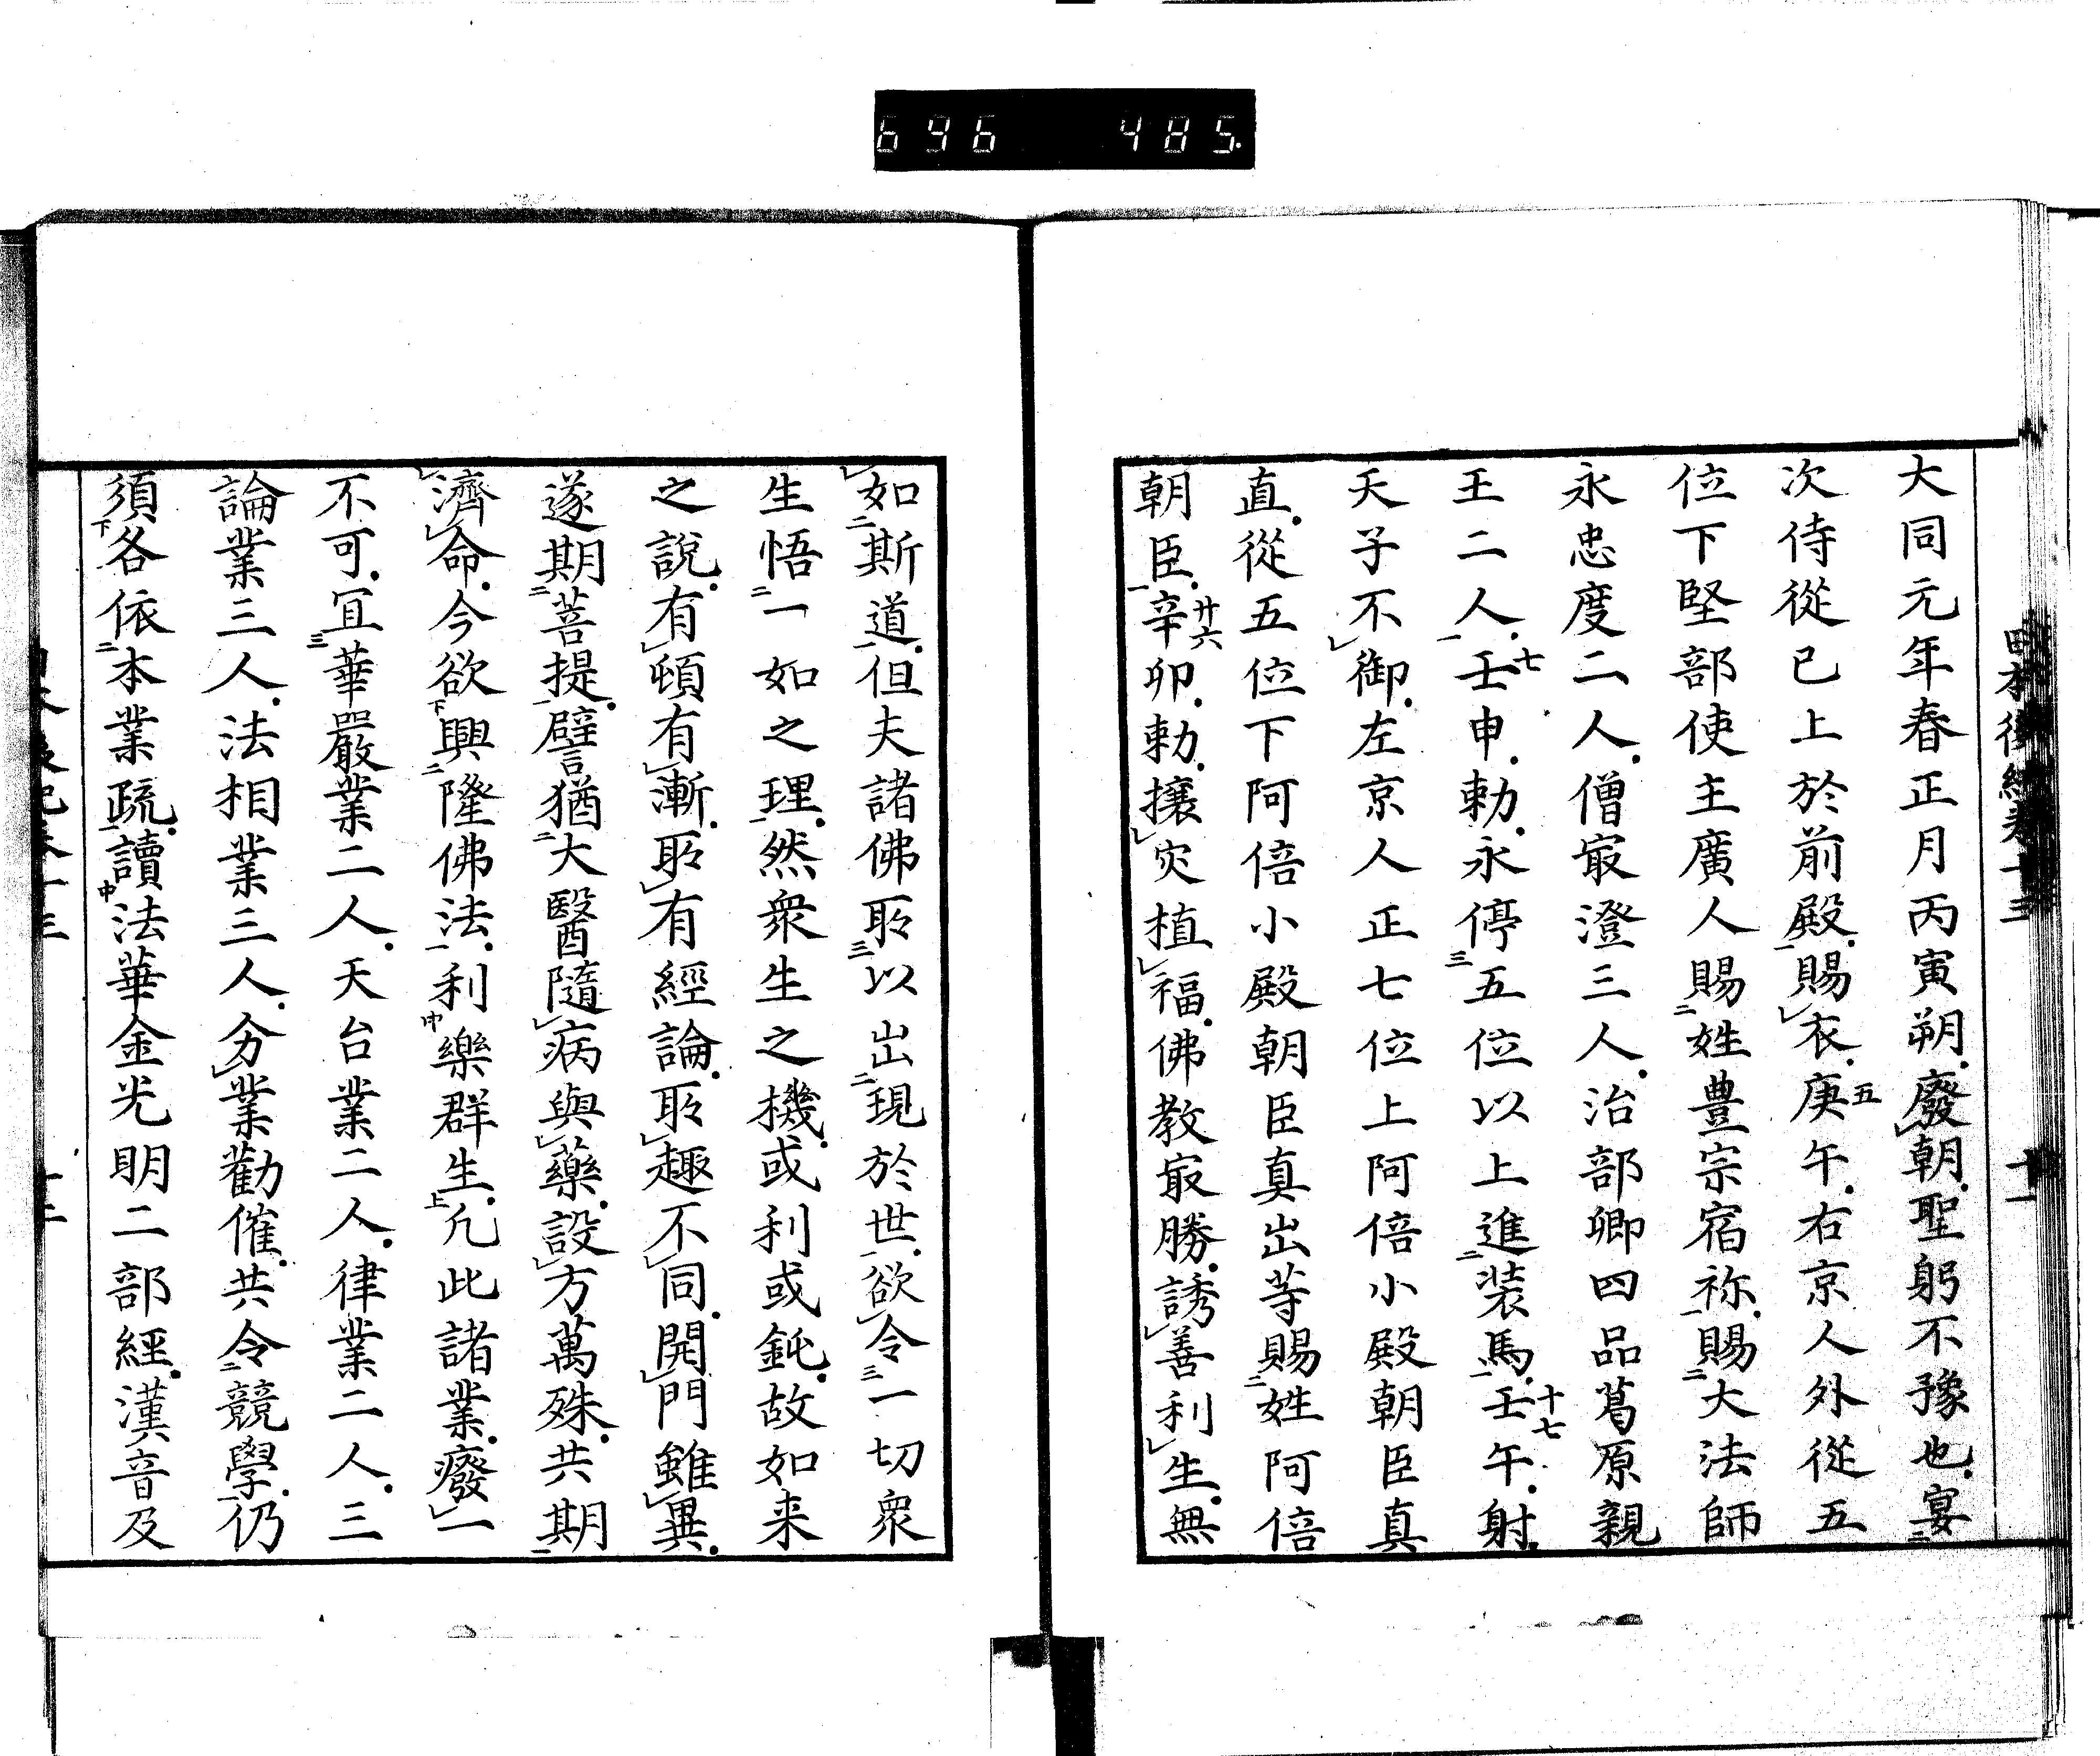 696 485.
大同元年春正月丙寅朔廢朝聖躬不豫也宴
次侍從已上於前殿賜衣庚午右京人外從五
位下堅部使主廣人賜姓豊宗宿祢賜大法師
永忠度二人僧㝡澄三人治部卿四品葛原親
王二人壬申勅永停五位以上進装馬壬午射
天子不御左京人正七位上阿倍小殿朝臣真
直從五位下阿倍小殿朝臣真出等賜姓阿倍
朝臣辛卯勅攘災植福佛教㝡勝誘善利生無
如斯道但夫諸佛所以出現於世欲令一切衆
生悟一如之理然衆生之機或利或鈍故如来
之說有頓有漸所有經論所趣不同開門雖異
遂期菩提譬猶大醫隨病與藥設方萬殊共期
濟命今欲興隆佛法利樂群生凡此諸業廢一
不可宜華嚴業二人天台業二人律業二人三
論業三人法相業三人分業勸催共令競學仍
須各依本業疏讀法華金光明二部經漢音及